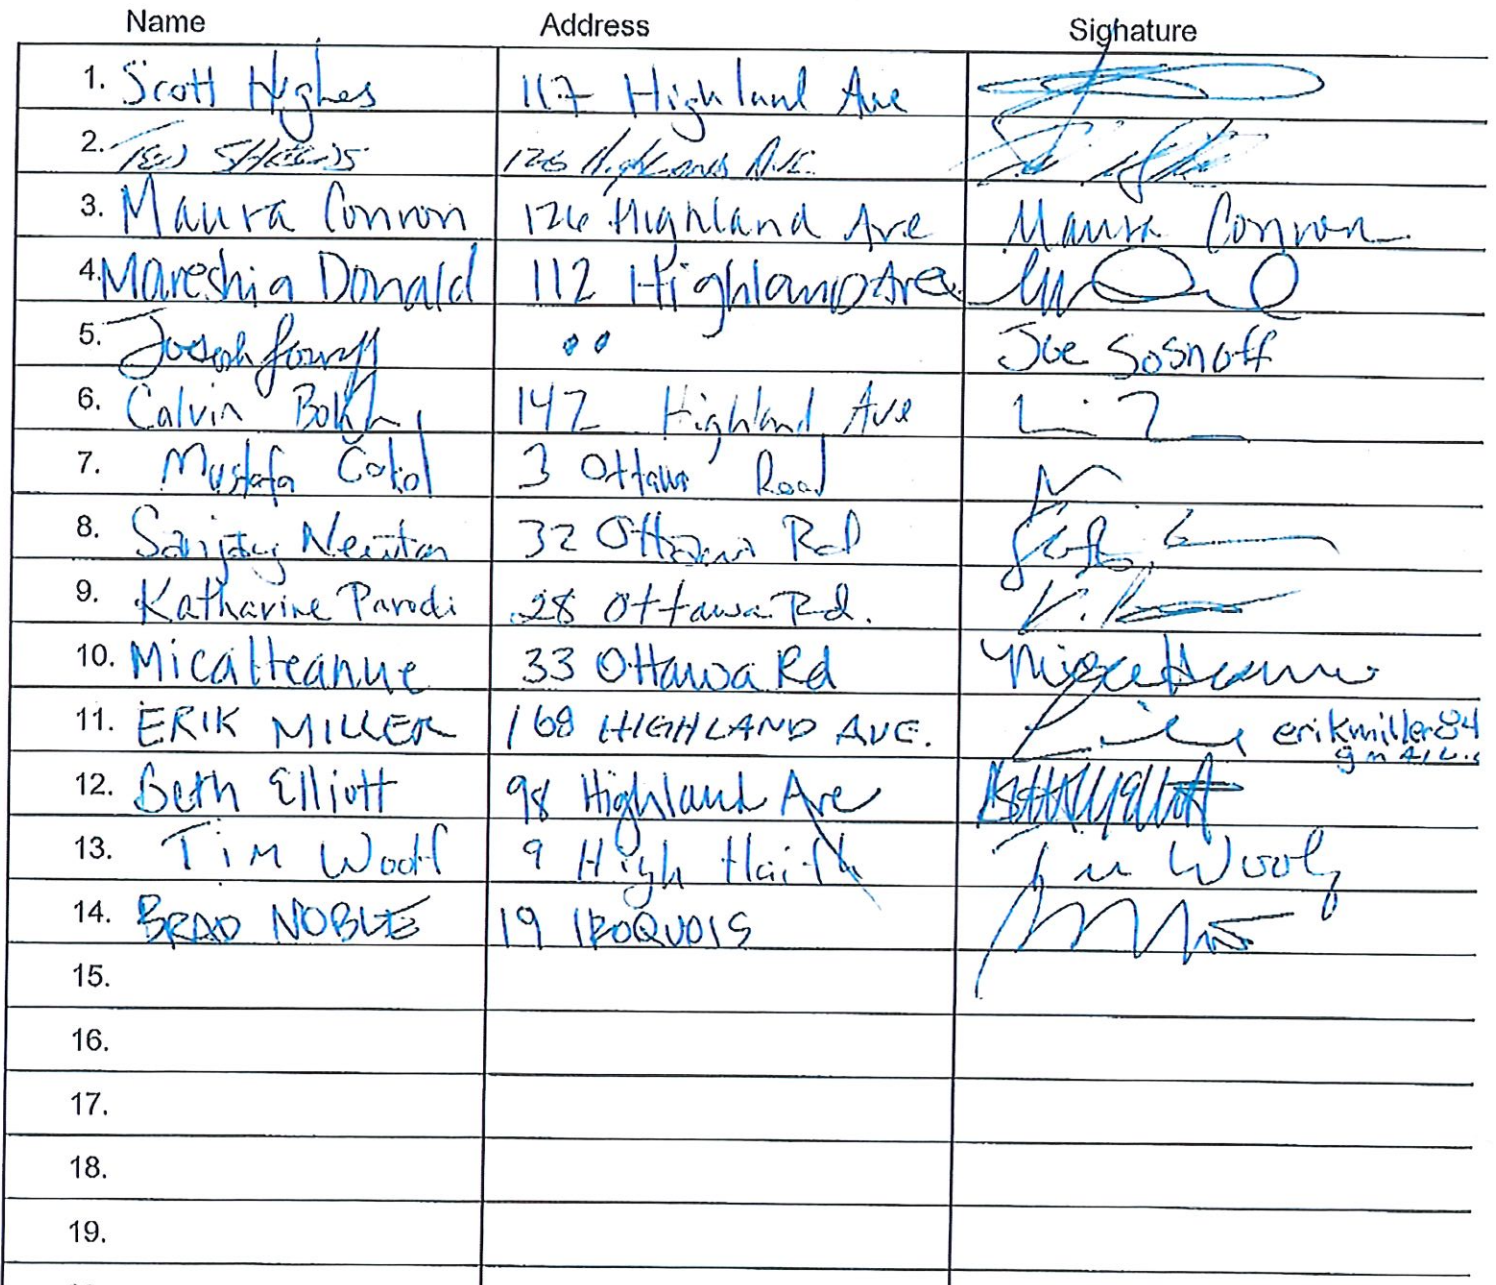 Name Address Signature
1. Scott Hughes 117 Highland Ave
2. Ted 126 Highland Ave.
3. Maura Conron 126 Highland Ave Maura Conron
4. Mareshia Donald 112 Highland Ave
5. Joseph " Joe Sosnoff
6. Calvin 142 Highland Ave
7. Mustafa 3 Ottawa Road
8. Sanjay Newton 32 Ottawa Rd
9. Katharine Parodi 28 Ottawa Rd. K.
10. Mica Heanue 33 Ottawa Rd Mica Heanue
11. ERIK MILLER 168 HIGHLAND AVE. erikmiller84
12. Beth Elliott 98 Highland Ave Beth Elliott
13. Tim Woolf 9 High Haith Tim Woolf
14. BRAD NOBLE 19 IROQUOIS
15.
16.
17.
18.
19.